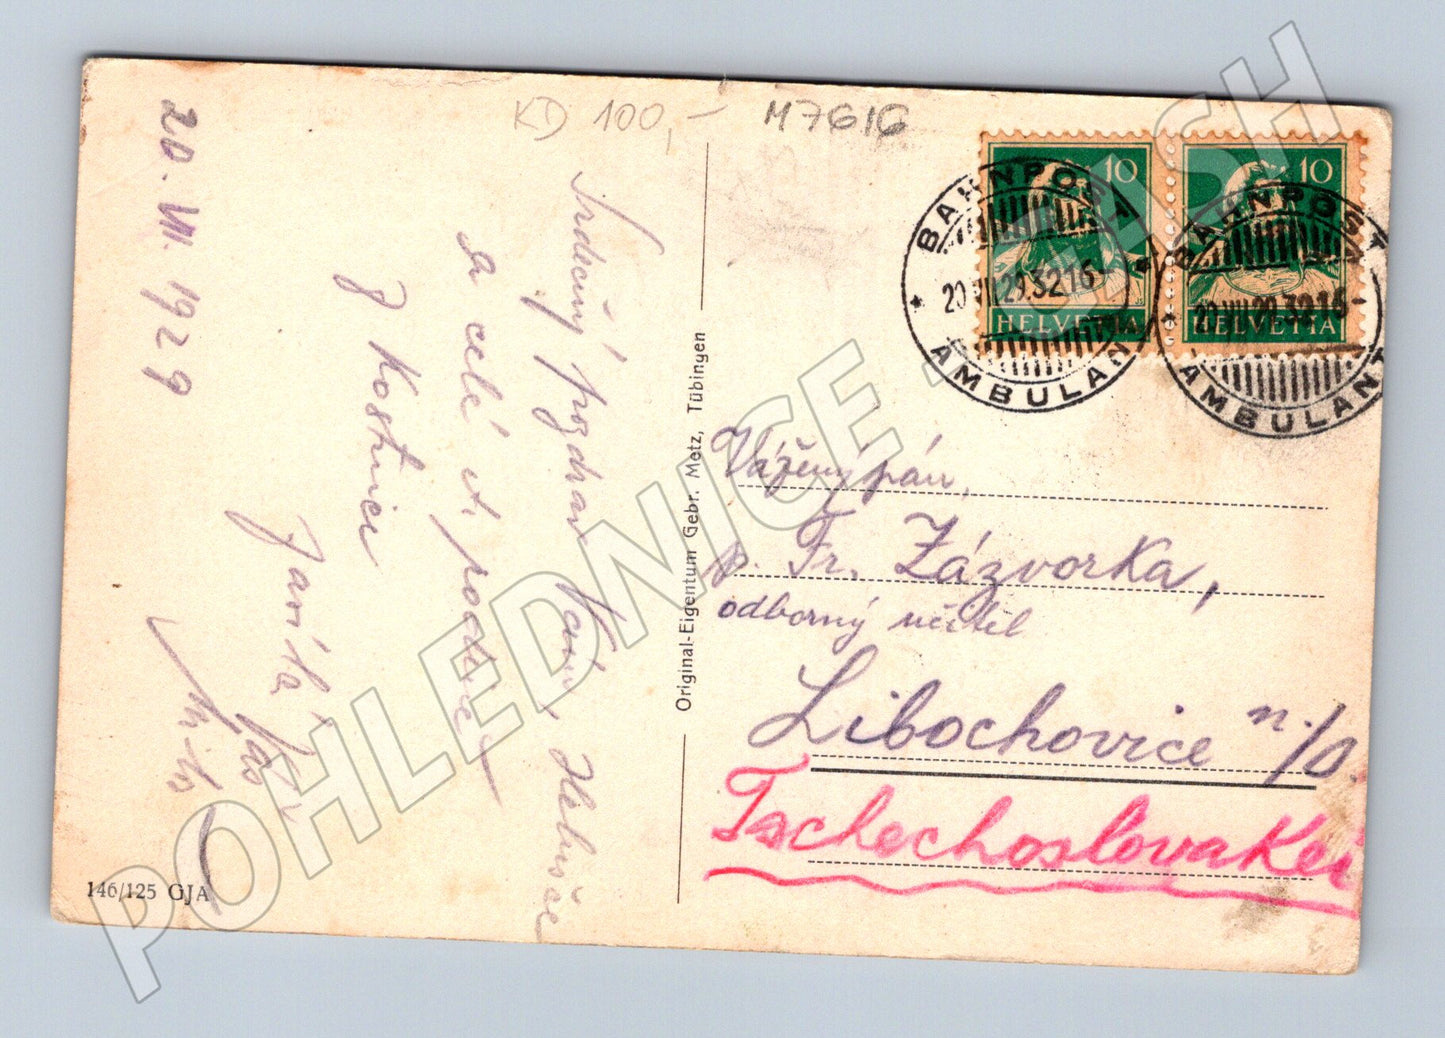 KD 100,- M7616
20. VII. 1929
Srdečný pozdrav Vám,
a celé ct. rodince
z Kostnice
Jarmila
146/125 GJA
Original-Eigentum Gebr. Metz, Tübingen
10
HELVETIA
10
HELVETIA
BAHNPOST
20.VII.29.3216-
AMBULANT
BAHNPOST
20.VII.29.3216-
AMBULANT
Vážený pán,
p. Fr. Zázvorka,
odborný učitel
Libochovice n./O.
Tschechoslovakei
POHLEDNICE